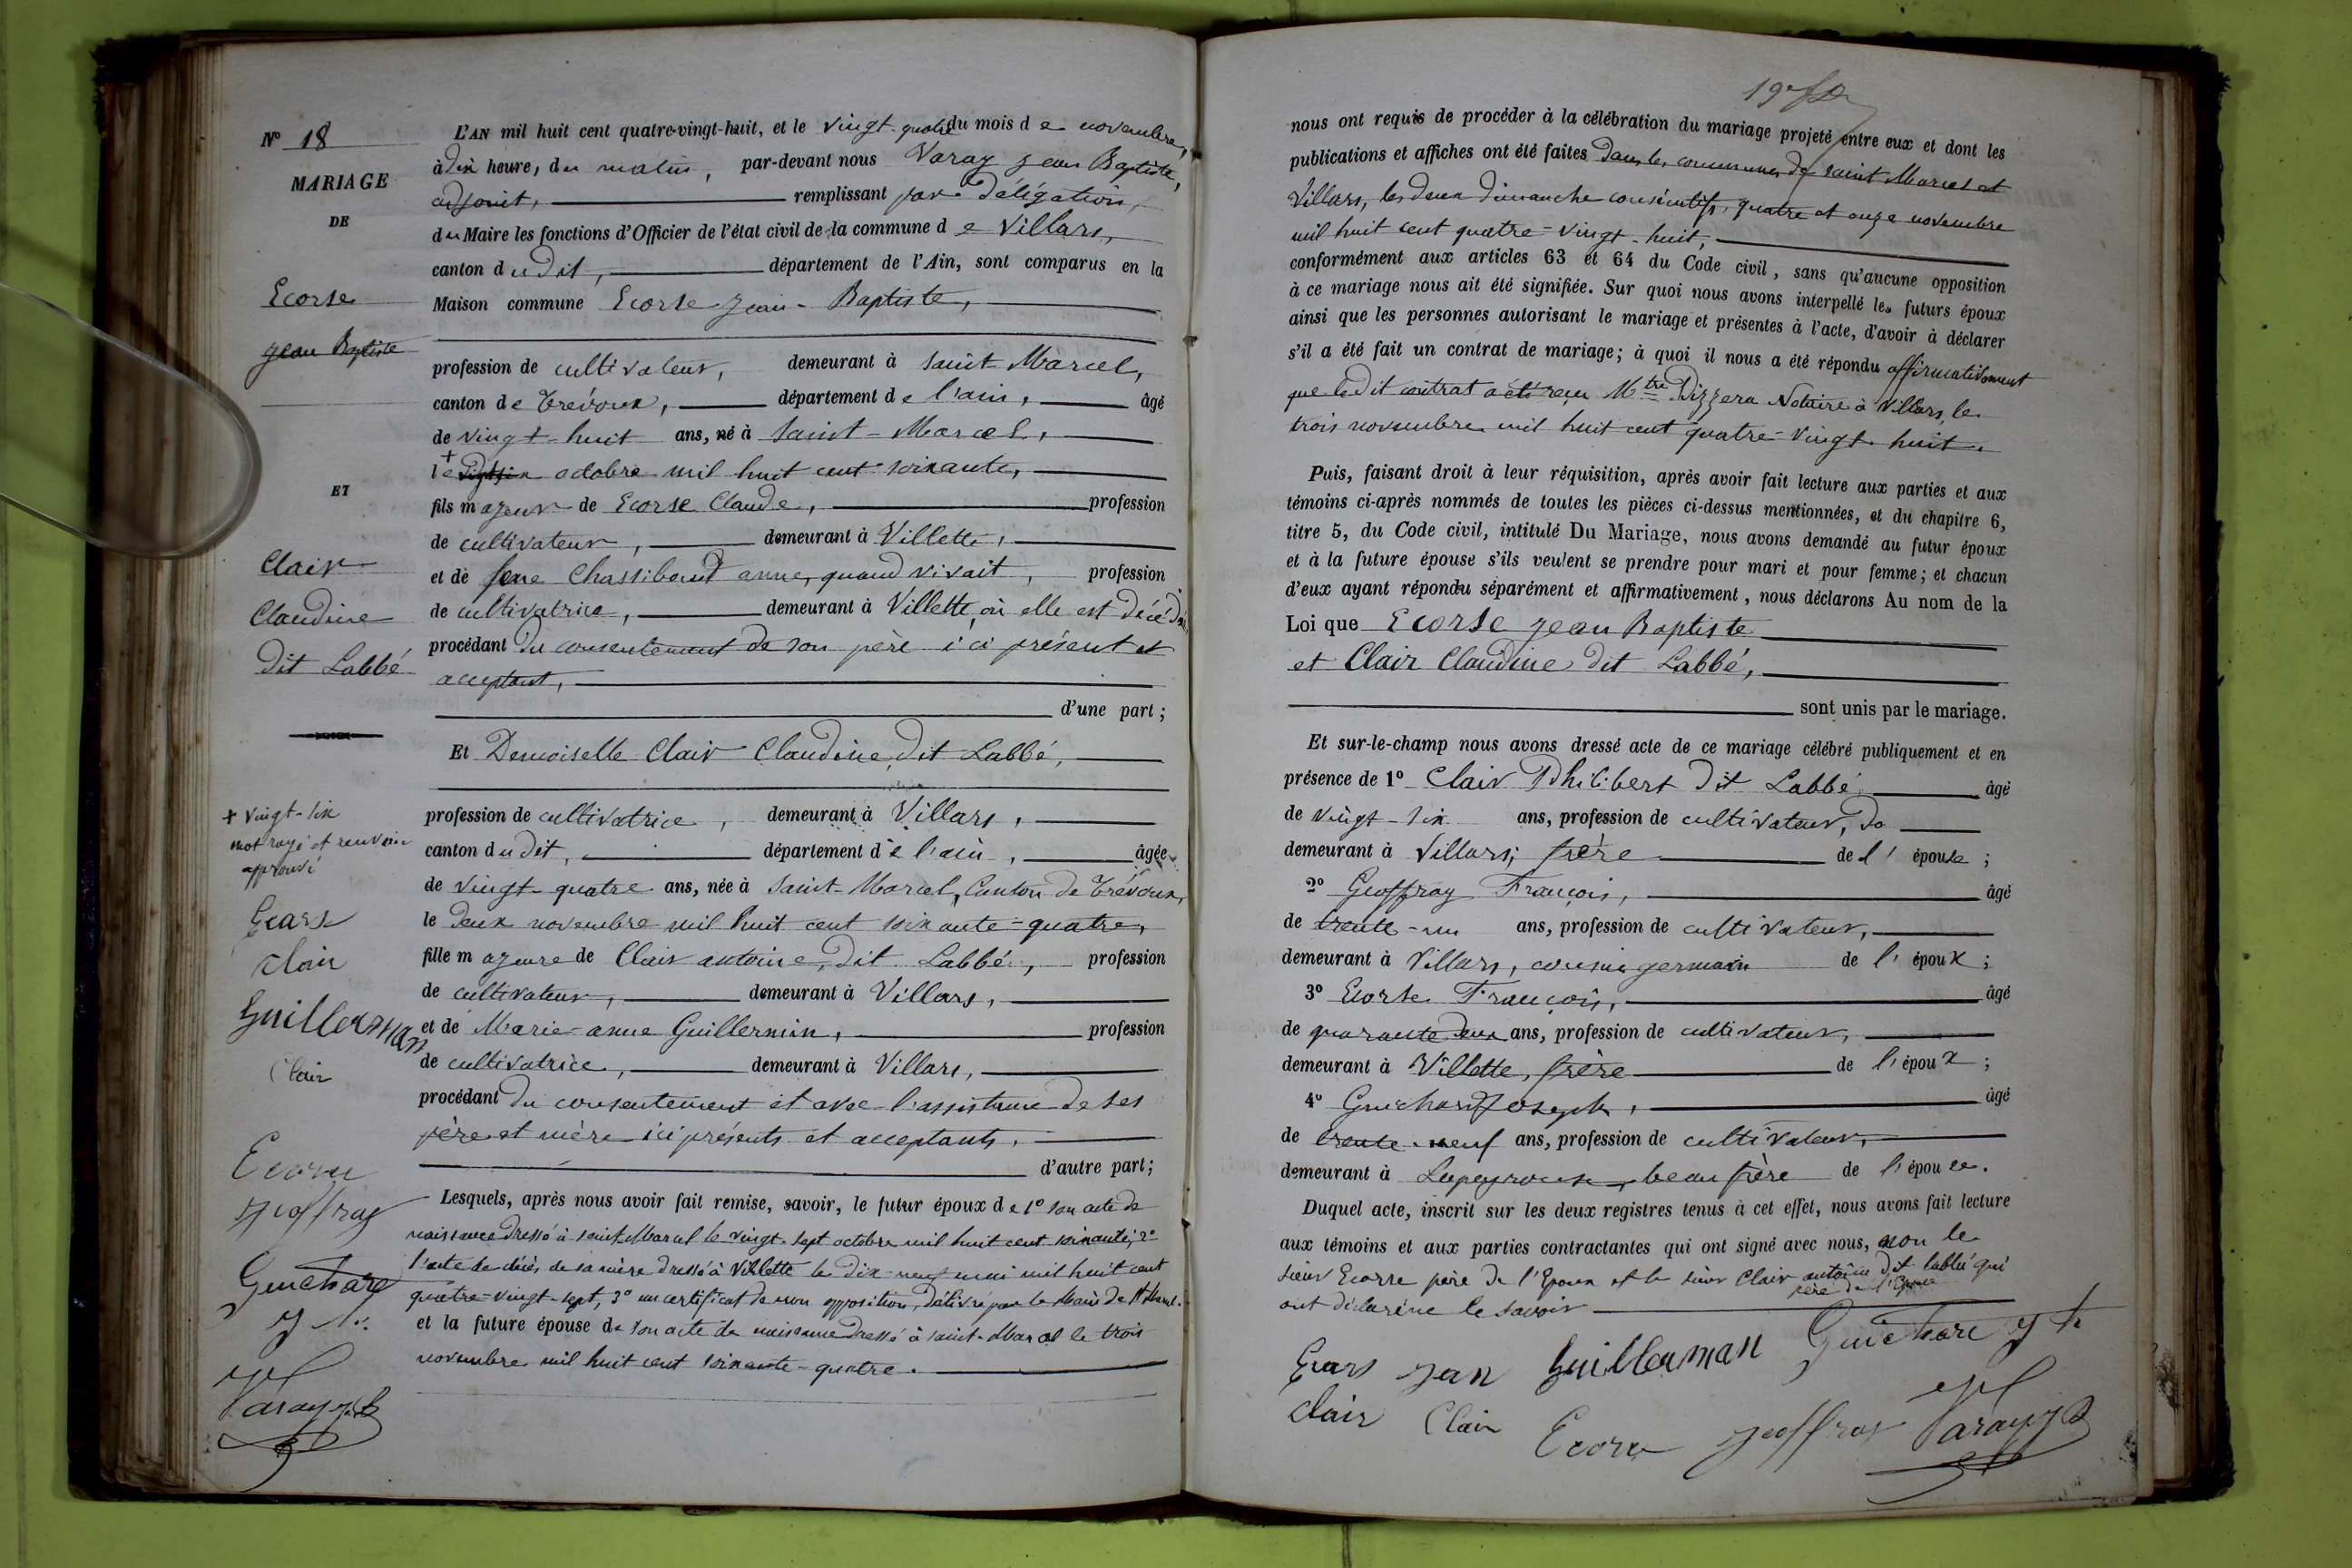 N° 18
MARIAGE
DE
Ecorse
Jean Baptiste
ET
Clair
Claudine
dit Labbé
+ vingt-six
mot rayé et renvoi
approuvé
Ecors
Clair
Guillerman
Clair
Ecorse
Geoffray
Guichard
Varay J B
L'AN mil huit cent quatre-vingt-huit, et le vingt-quatre du mois de novembre,
à dix heure, du matin, par-devant nous Varay Jean Baptiste,
adjoint, remplissant par délégation,
du Maire les fonctions d'Officier de l'état civil de la commune de Villars,
canton dudit, département de l'Ain, sont comparus en la
Maison commune Ecorse Jean-Baptiste,
profession de cultivateur, demeurant à Saint Marcel,
canton de Trévoux, département de l'ain, âgé
de vingt-huit ans, né à Saint-Marcel,
le + octobre mil huit cent soixante,
fils majeur de Ecorse Claude, profession
de cultivateur, demeurant à Villette,
et de feue Chassibaud anne, quand vivait, profession
de cultivatrice, demeurant à Villette, où elle est décédée
procédant du consentement de son père ici présent et
acceptant,
d'une part;
Et Demoiselle Clair Claudine, dit Labbé,
profession de cultivatrice, demeurant à Villars,
canton dudit, département de l'ain, âgée
de vingt-quatre ans, née à Saint-Marcel, Canton de Trévoux,
le deux novembre mil huit cent soixante-quatre,
fille majeure de Clair antoine, dit Labbé, profession
de cultivateur, demeurant à Villars,
et de Marie-anne Guillermin, profession
de cultivatrice, demeurant à Villars,
procédant du consentement et avec l'assistance de ses
père et mère ici présents et acceptants,
d'autre part;
Lesquels, après nous avoir fait remise, savoir, le futur époux de 1° son acte de
naissance dressé à Saint-Marcel le vingt-sept octobre mil huit cent soixante; 2°
l'acte de décès de sa mère dressé à Villette le dix-neuf mai mil huit cent
quatre-vingt-sept, 3° un certificat de non opposition, délivré par le Maire de St Marcel.
et la future épouse de son acte de naissance dressé à Saint-Marcel le trois
novembre mil huit cent soixante-quatre.
19e
nous ont requis de procéder à la célébration du mariage projeté entre eux et dont les
publications et affiches ont été faites dans les communes de Saint Marcel et
Villars, les deux dimanche consécutifs, quatre et onze novembre
mil huit cent quatre-vingt-huit,
conformément aux articles 63 et 64 du Code civil, sans qu'aucune opposition
à ce mariage nous ait été signifiée. Sur quoi nous avons interpellé les futurs époux
ainsi que les personnes autorisant le mariage et présentes à l'acte, d'avoir à déclarer
s'il a été fait un contrat de mariage; à quoi il nous a été répondu affirmativement
que ledit contrat a été reçu Mtre Dizzera Notaire à Villars, le
trois novembre mil huit cent quatre-vingt-huit.
Puis, faisant droit à leur réquisition, après avoir fait lecture aux parties et aux
témoins ci-après nommés de toutes les pièces ci-dessus mentionnées, et du chapitre 6,
titre 5, du Code civil, intitulé Du Mariage, nous avons demandé au futur époux
et à la future épouse s'ils veulent se prendre pour mari et pour femme; et chacun
d'eux ayant répondu séparément et affirmativement, nous déclarons Au nom de la
Loi que Ecorse Jean Baptiste
et Clair Claudine dit Labbé,
sont unis par le mariage.
Et sur-le-champ nous avons dressé acte de ce mariage célébré publiquement et en
présence de 1° Clair Philibert dit Labbé âgé
de vingt-six ans, profession de cultivateur, do
demeurant à Villars; frère de l'épouse;
2° Geoffray François, âgé
de trente-un ans, profession de cultivateur,
demeurant à Villars, cousin germain de l'époux;
3° Ecorse François, âgé
de quarante deux ans, profession de cultivateur,
demeurant à Villette, frère de l'époux;
4° Guichard Joseph, âgé
de trente-neuf ans, profession de cultivateur,
demeurant à Lapeyrouse, beau frère de l'épouse.
Duquel acte, inscrit sur les deux registres tenus à cet effet, nous avons fait lecture
aux témoins et aux parties contractantes qui ont signé avec nous, non le
sieur Ecorse père de l'Epoux et le sieur Clair antoine dit labbé qui
père de l'Epouse
ont déclaré ne le savoir
Ecors Jean Guillerman Guichard
Clair Clair Ecorse Geoffray Varay J B